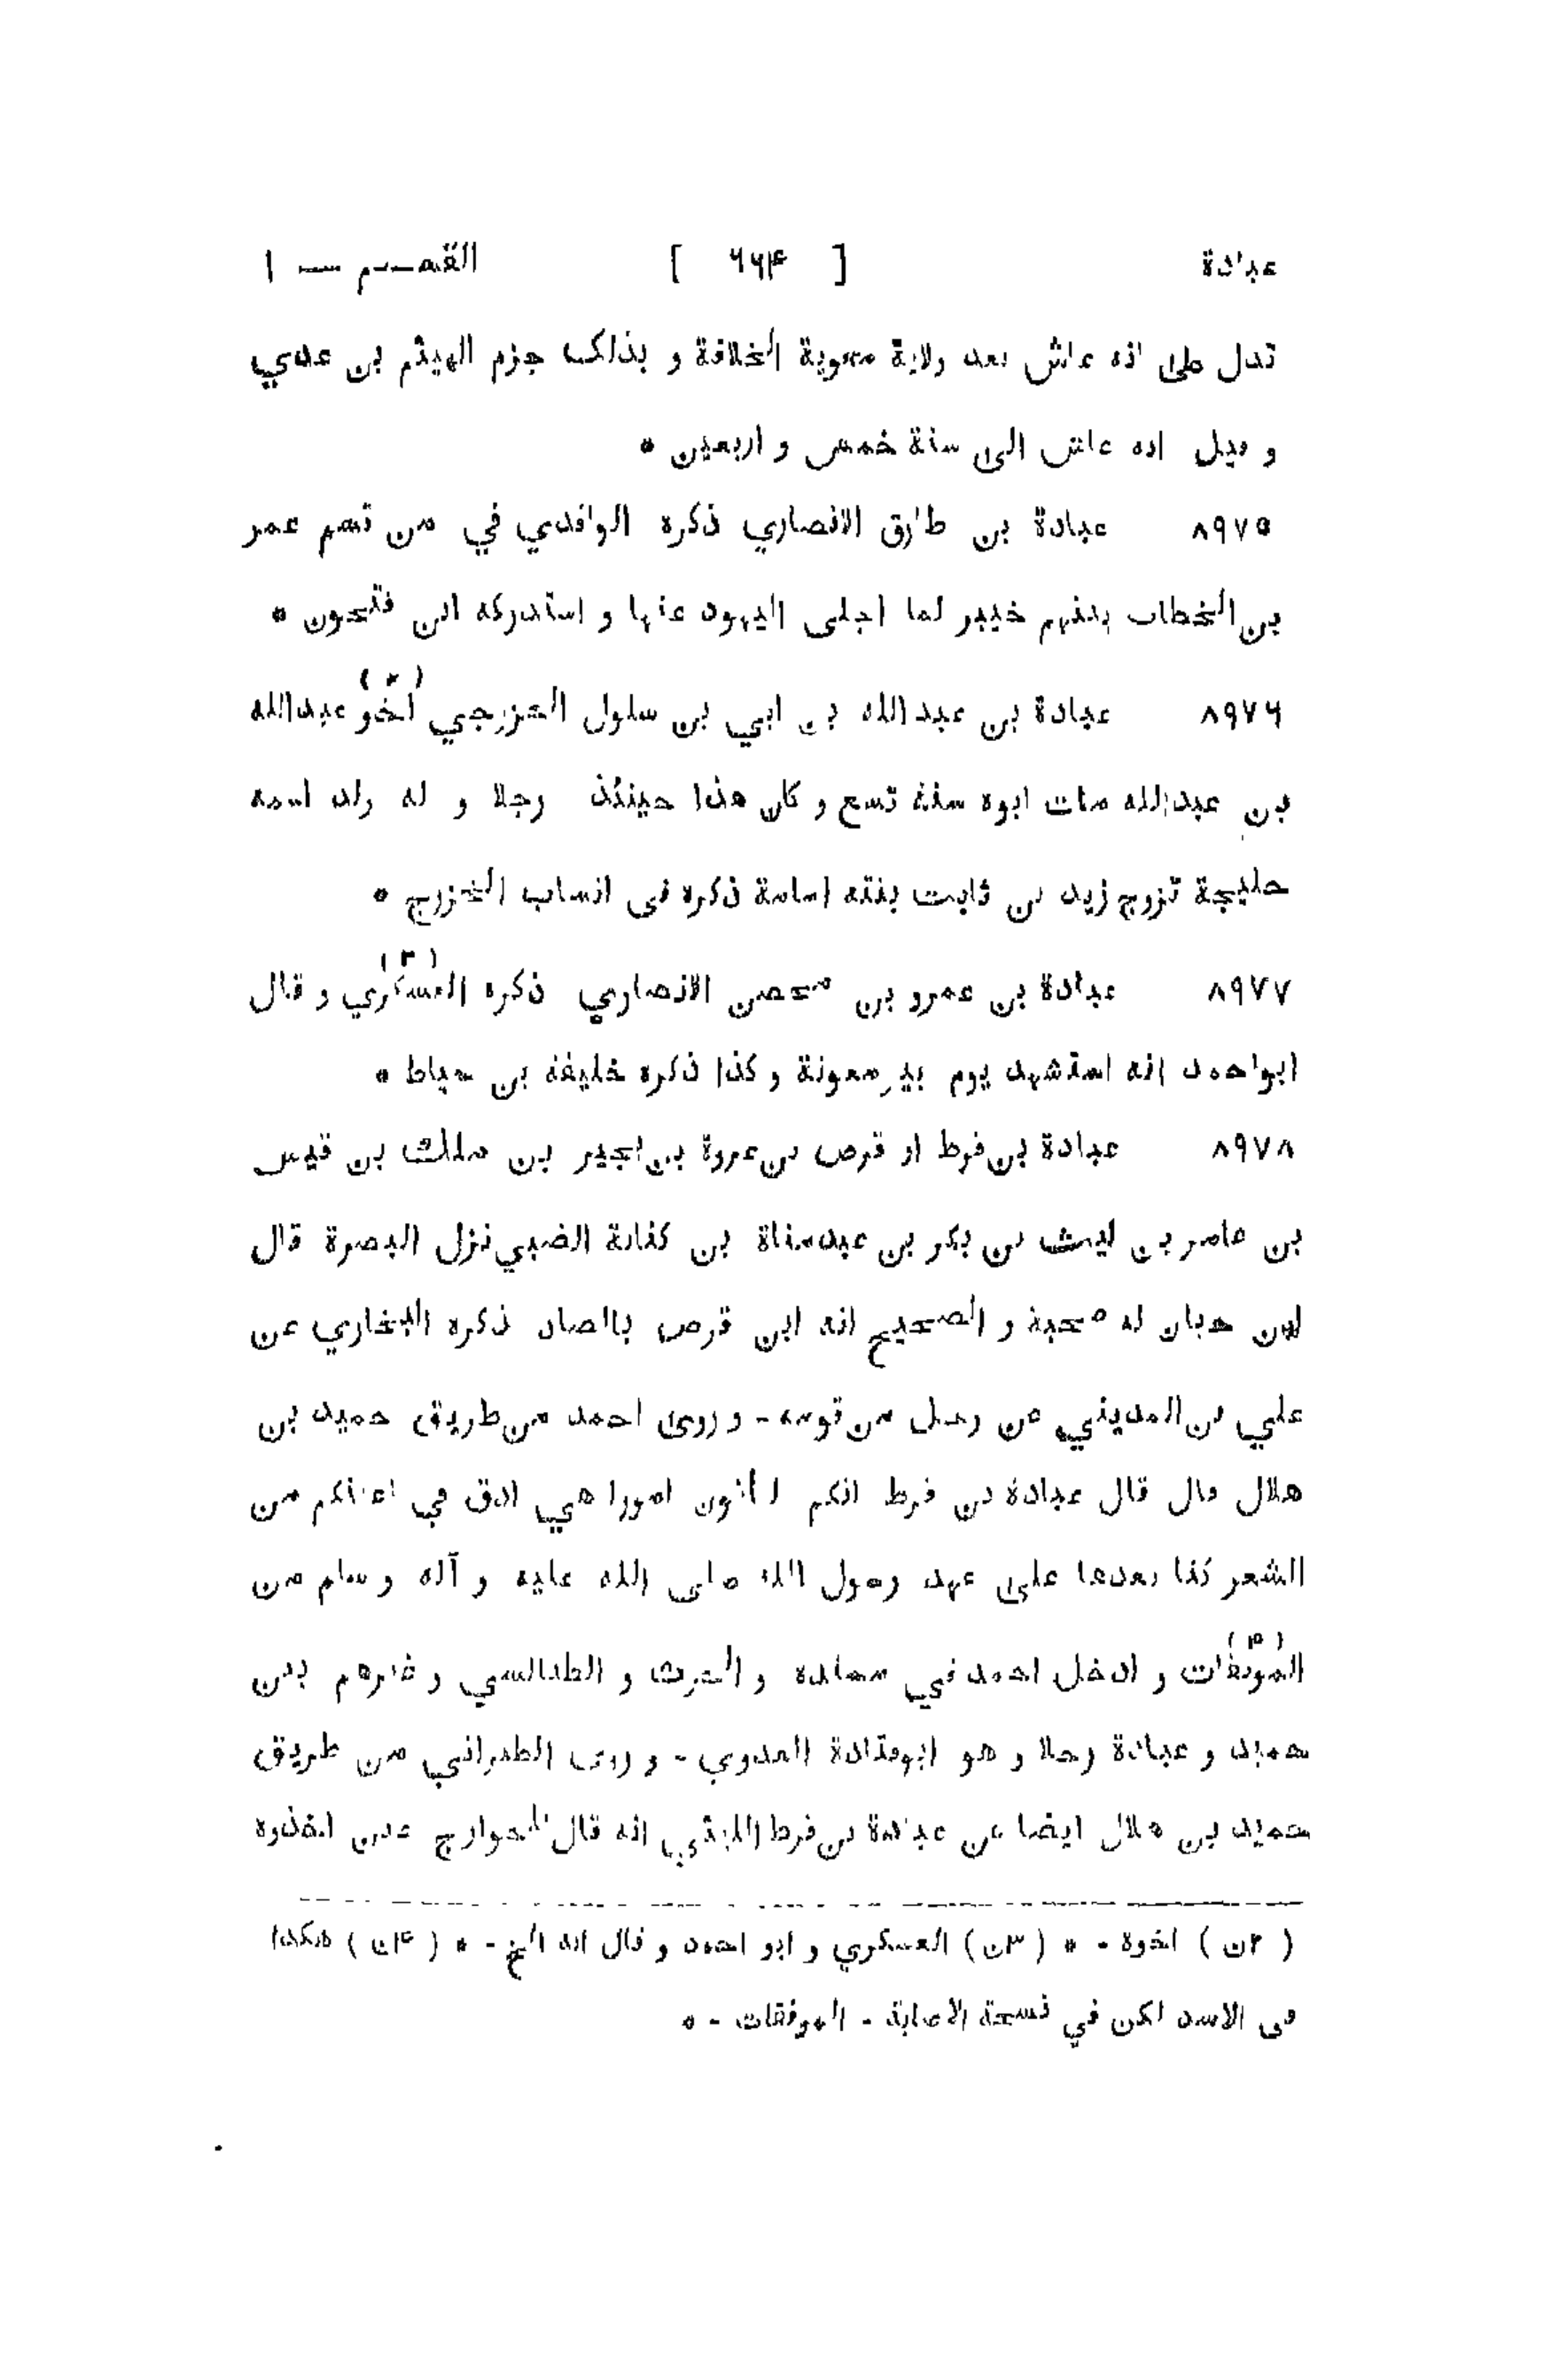 عبادة [ ۶۶۴ ] القسم — ۱
تدل على انه عاش بعد ولاية معوية الخلافة و بذلك جزم الهيثم بن عدي
و قيل انه عاش الى سنة خمس و اربعين *
۸۹۷۵ عبادة بن طارق الانصاري ذكره الواقدي في من قسم عمر
بن الخطاب بينهم خيبر لما اجلى اليهود عنها و استدركه ابن فتحون *
۸۹۷۶ عبادة بن عبد الله بن ابي بن سلول الخزرجي اخو (۲) عبدالله
بن عبدالله مات ابوه سنة تسع و كان هذا حينئذ رجلا و له ولد اسمه
جليحة تزوج زيد بن ثابت بنته امامة ذكره في انساب الخزرج *
۸۹۷۷ عبادة بن عمرو بن محصن الانصاري ذكره العسكري (۳) و قال
ابو احمد انه استشهد يوم بير معونة و كذا ذكره خليفة بن خياط *
۸۹۷۸ عبادة بن قرط او قرص بن عروة بن بجير بن مالك بن قيس
بن عامر بن ليث بن بكر بن عبد مناة بن كنانة الضبي نزل البصرة قال
ابن حبان له صحبة و الصحيح انه ابن قرص بالصاد ذكره البخاري عن
علي بن المديني عن رجل من قومه - و روى احمد من طريق حميد بن
هلال قال قال عبادة بن قرط انكم لتاتون امورا هي ادق في اعينكم من
الشعر كنا نعدها على عهد رسول الله صلى الله عليه و آله و سلم من
الموبقات (۴) و ادخل احمد في مسنده و الحرث و الطيالسي و غيرهم بين
حميد و عبادة رجلا و هو ابوقتادة العدوي - و روى الطبراني من طريق
حميد بن هلال ايضا عن عبادة بن قرط الليثي انه قال للخوارج حين اخذوه
( ۲ن ) اخوة - * ( ۳ن ) العسكري و ابو احمد و قال انه الخ - * ( ۴ن ) هكذا
في الاسد لكن في نسخة الاصابة - الموفقات - *